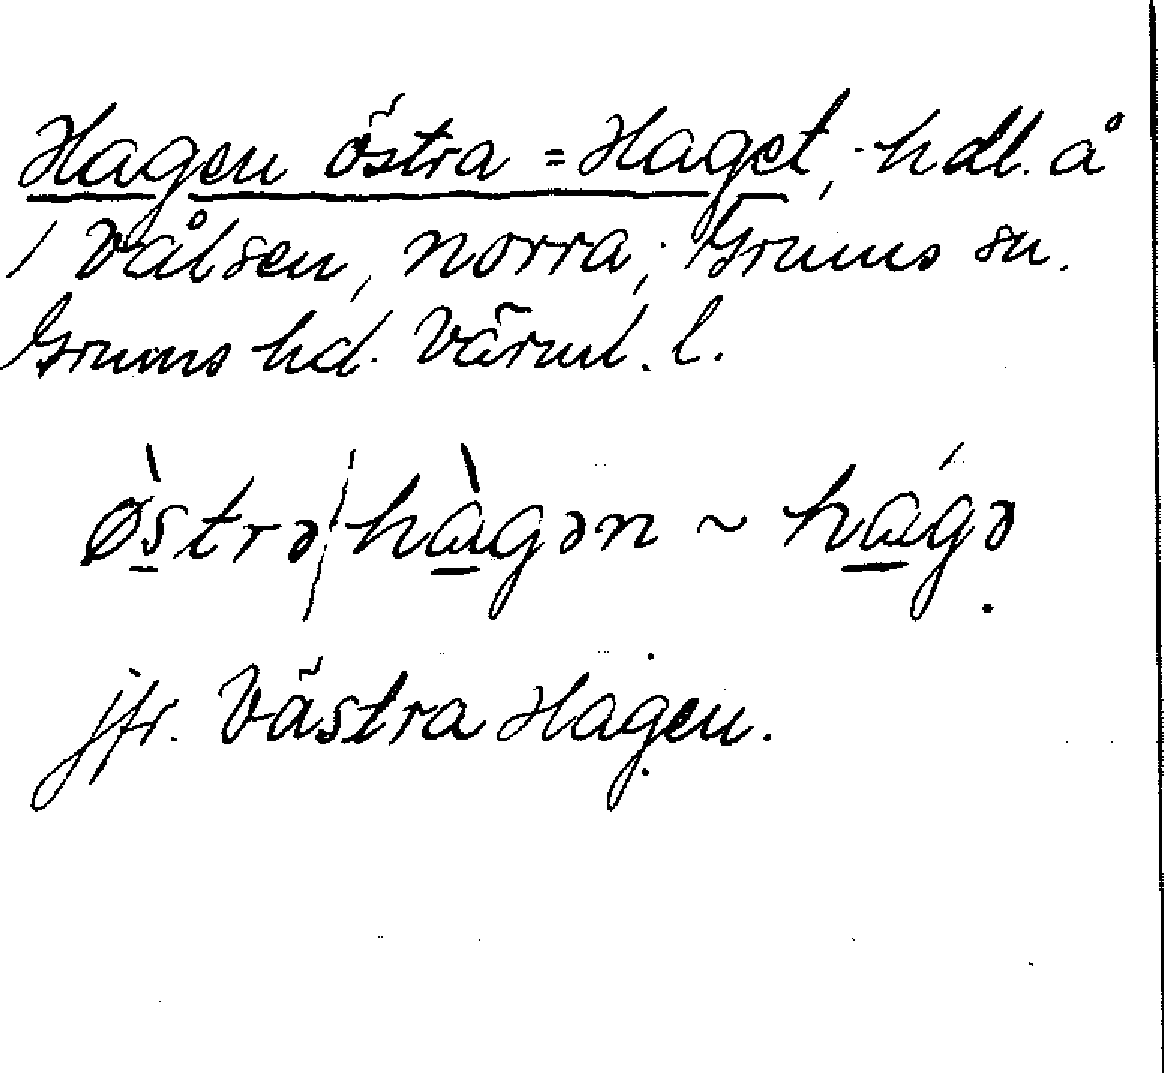 Hagen östra = Haget, hdl. å
1 Vålsen, norra; Grums sn.
Grums hd. Värml. l.
ø̀strə/hàgən ~ hágə.
jfr. Västra Hagen.